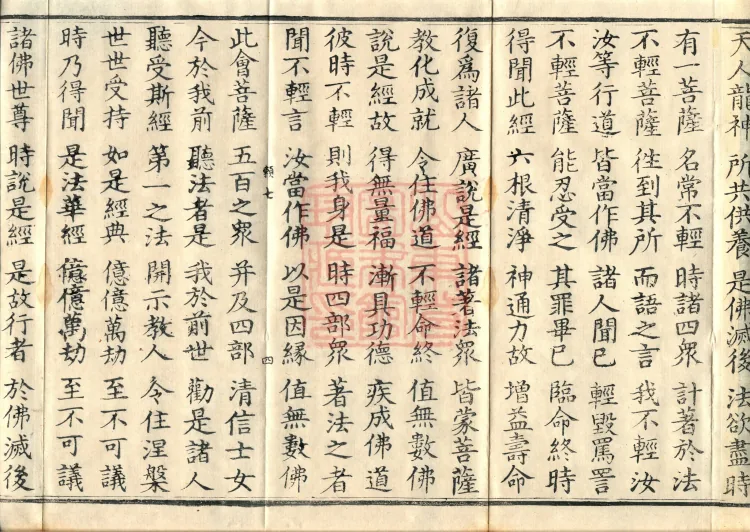 天人龍神 所共供養 是佛滅後 法欲盡時
有一菩薩 名常不輕 時諸四眾 計著於法
不輕菩薩 徃到其所 而語之言 我不輕汝
汝等行道 皆當作佛 諸人聞已 輕毀罵詈
不輕菩薩 能忍受之 其罪畢已 臨命終時
得聞此經 六根清淨 神通力故 增益壽命
復為諸人 廣說是經 諸著法眾 皆蒙菩薩
教化成就 令住佛道 不輕命終 值無數佛
說是經故 得無量福 漸具功德 疾成佛道
彼時不輕 則我身是 時四部眾 著法之者
聞不輕言 汝當作佛 以是因緣 值無數佛
七 四
此會菩薩 五百之眾 并及四部 清信士女
今於我前 聽法者是 我於前世 勸是諸人
聽受斯經 第一之法 開示教人 令住涅槃
世世受持 如是經典 億億萬劫 至不可議
時乃得聞 是法華經 億億萬劫 至不可議
諸佛世尊 時說是經 是故行者 於佛滅後